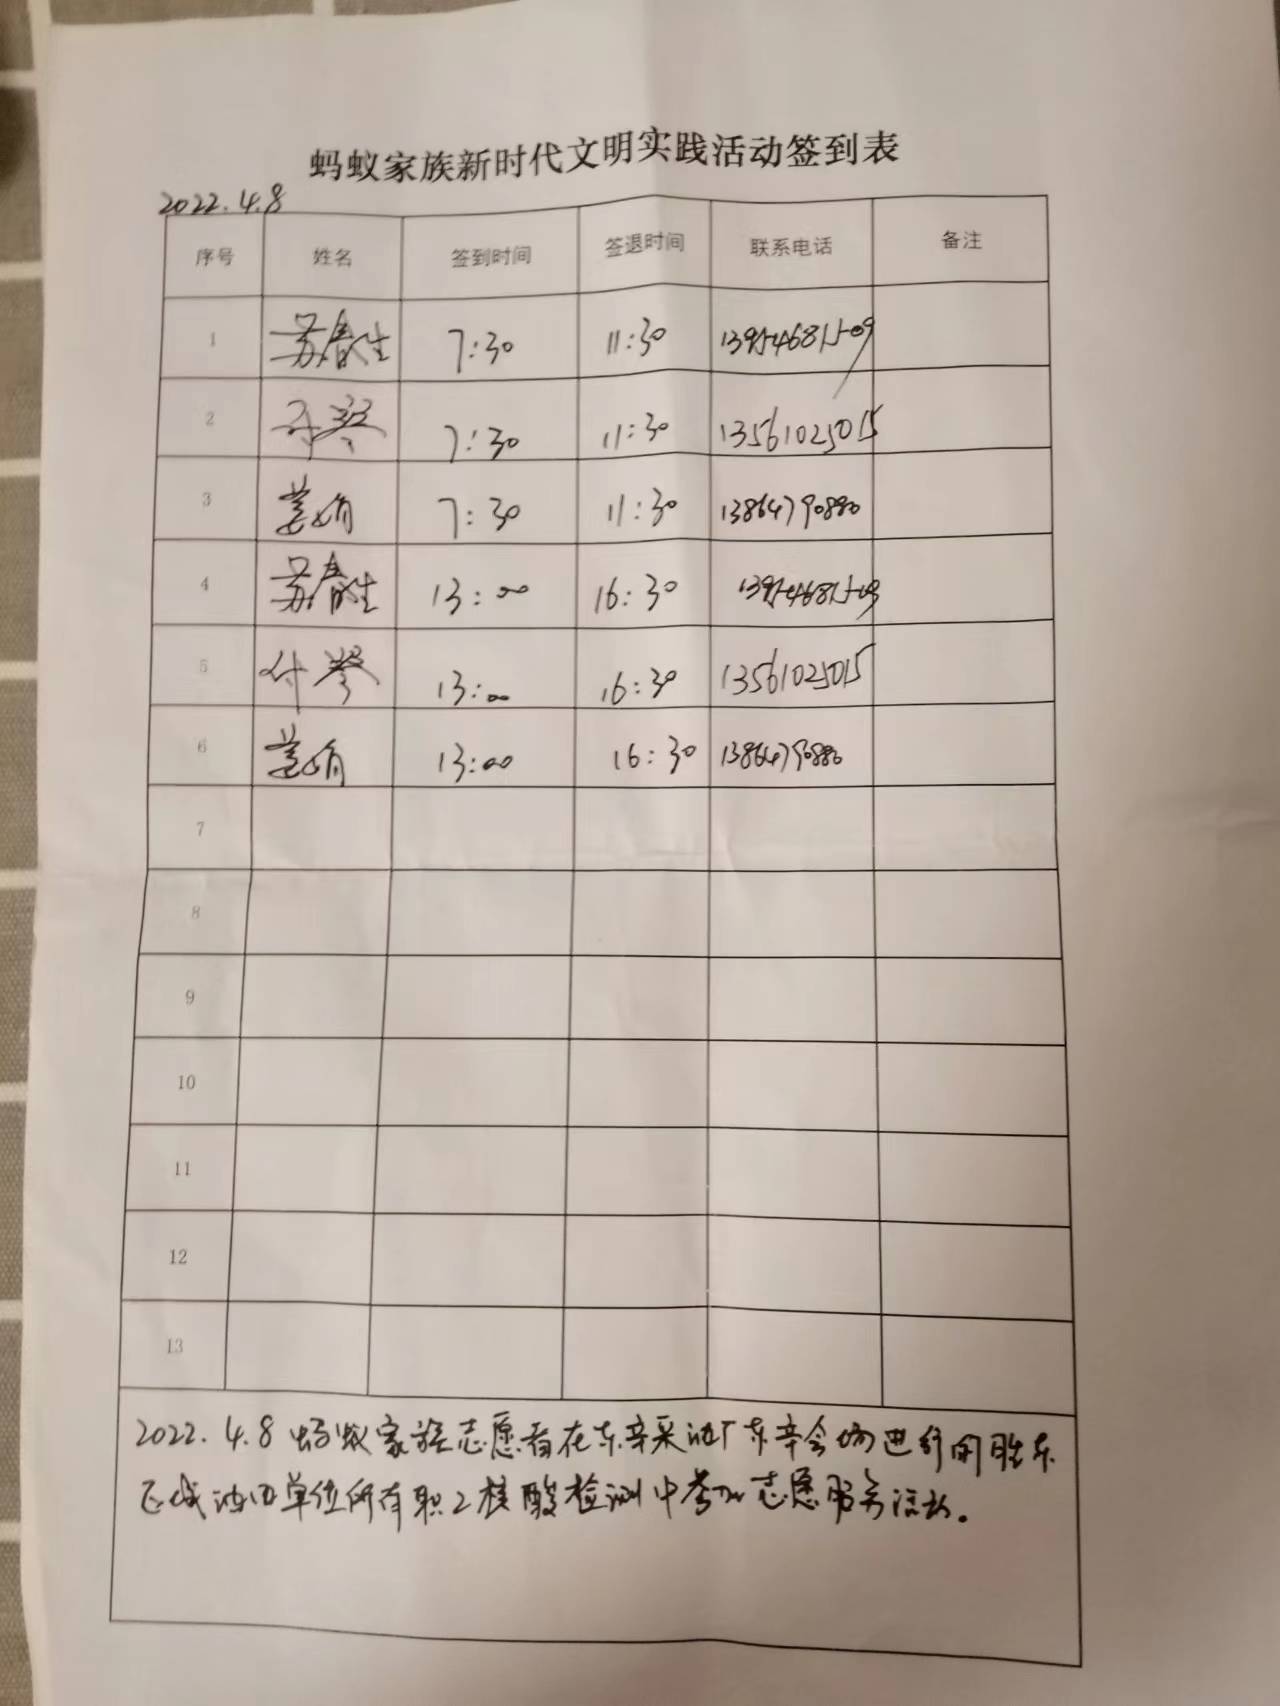 蚂蚁家族新时代文明实践活动签到表
2022.4.8
序号 姓名 签到时间 签退时间 联系电话 备注
1 苏春生 7:30 11:30 13954681509
2 付琴 7:30 11:30 13561025015
3 姜娟 7:30 11:30 13864790880
4 苏春生 13:00 16:30 13954681509
5 付琴 13:00 16:30 13561025015
6 姜娟 13:00 16:30 13864790880
7
8
9
10
11
12
13
2022.4.8 蚂蚁家族志愿者在东辛采油厂东辛会场进行的胜东
区域油田单位所有职工核酸检测中参加志愿服务活动。